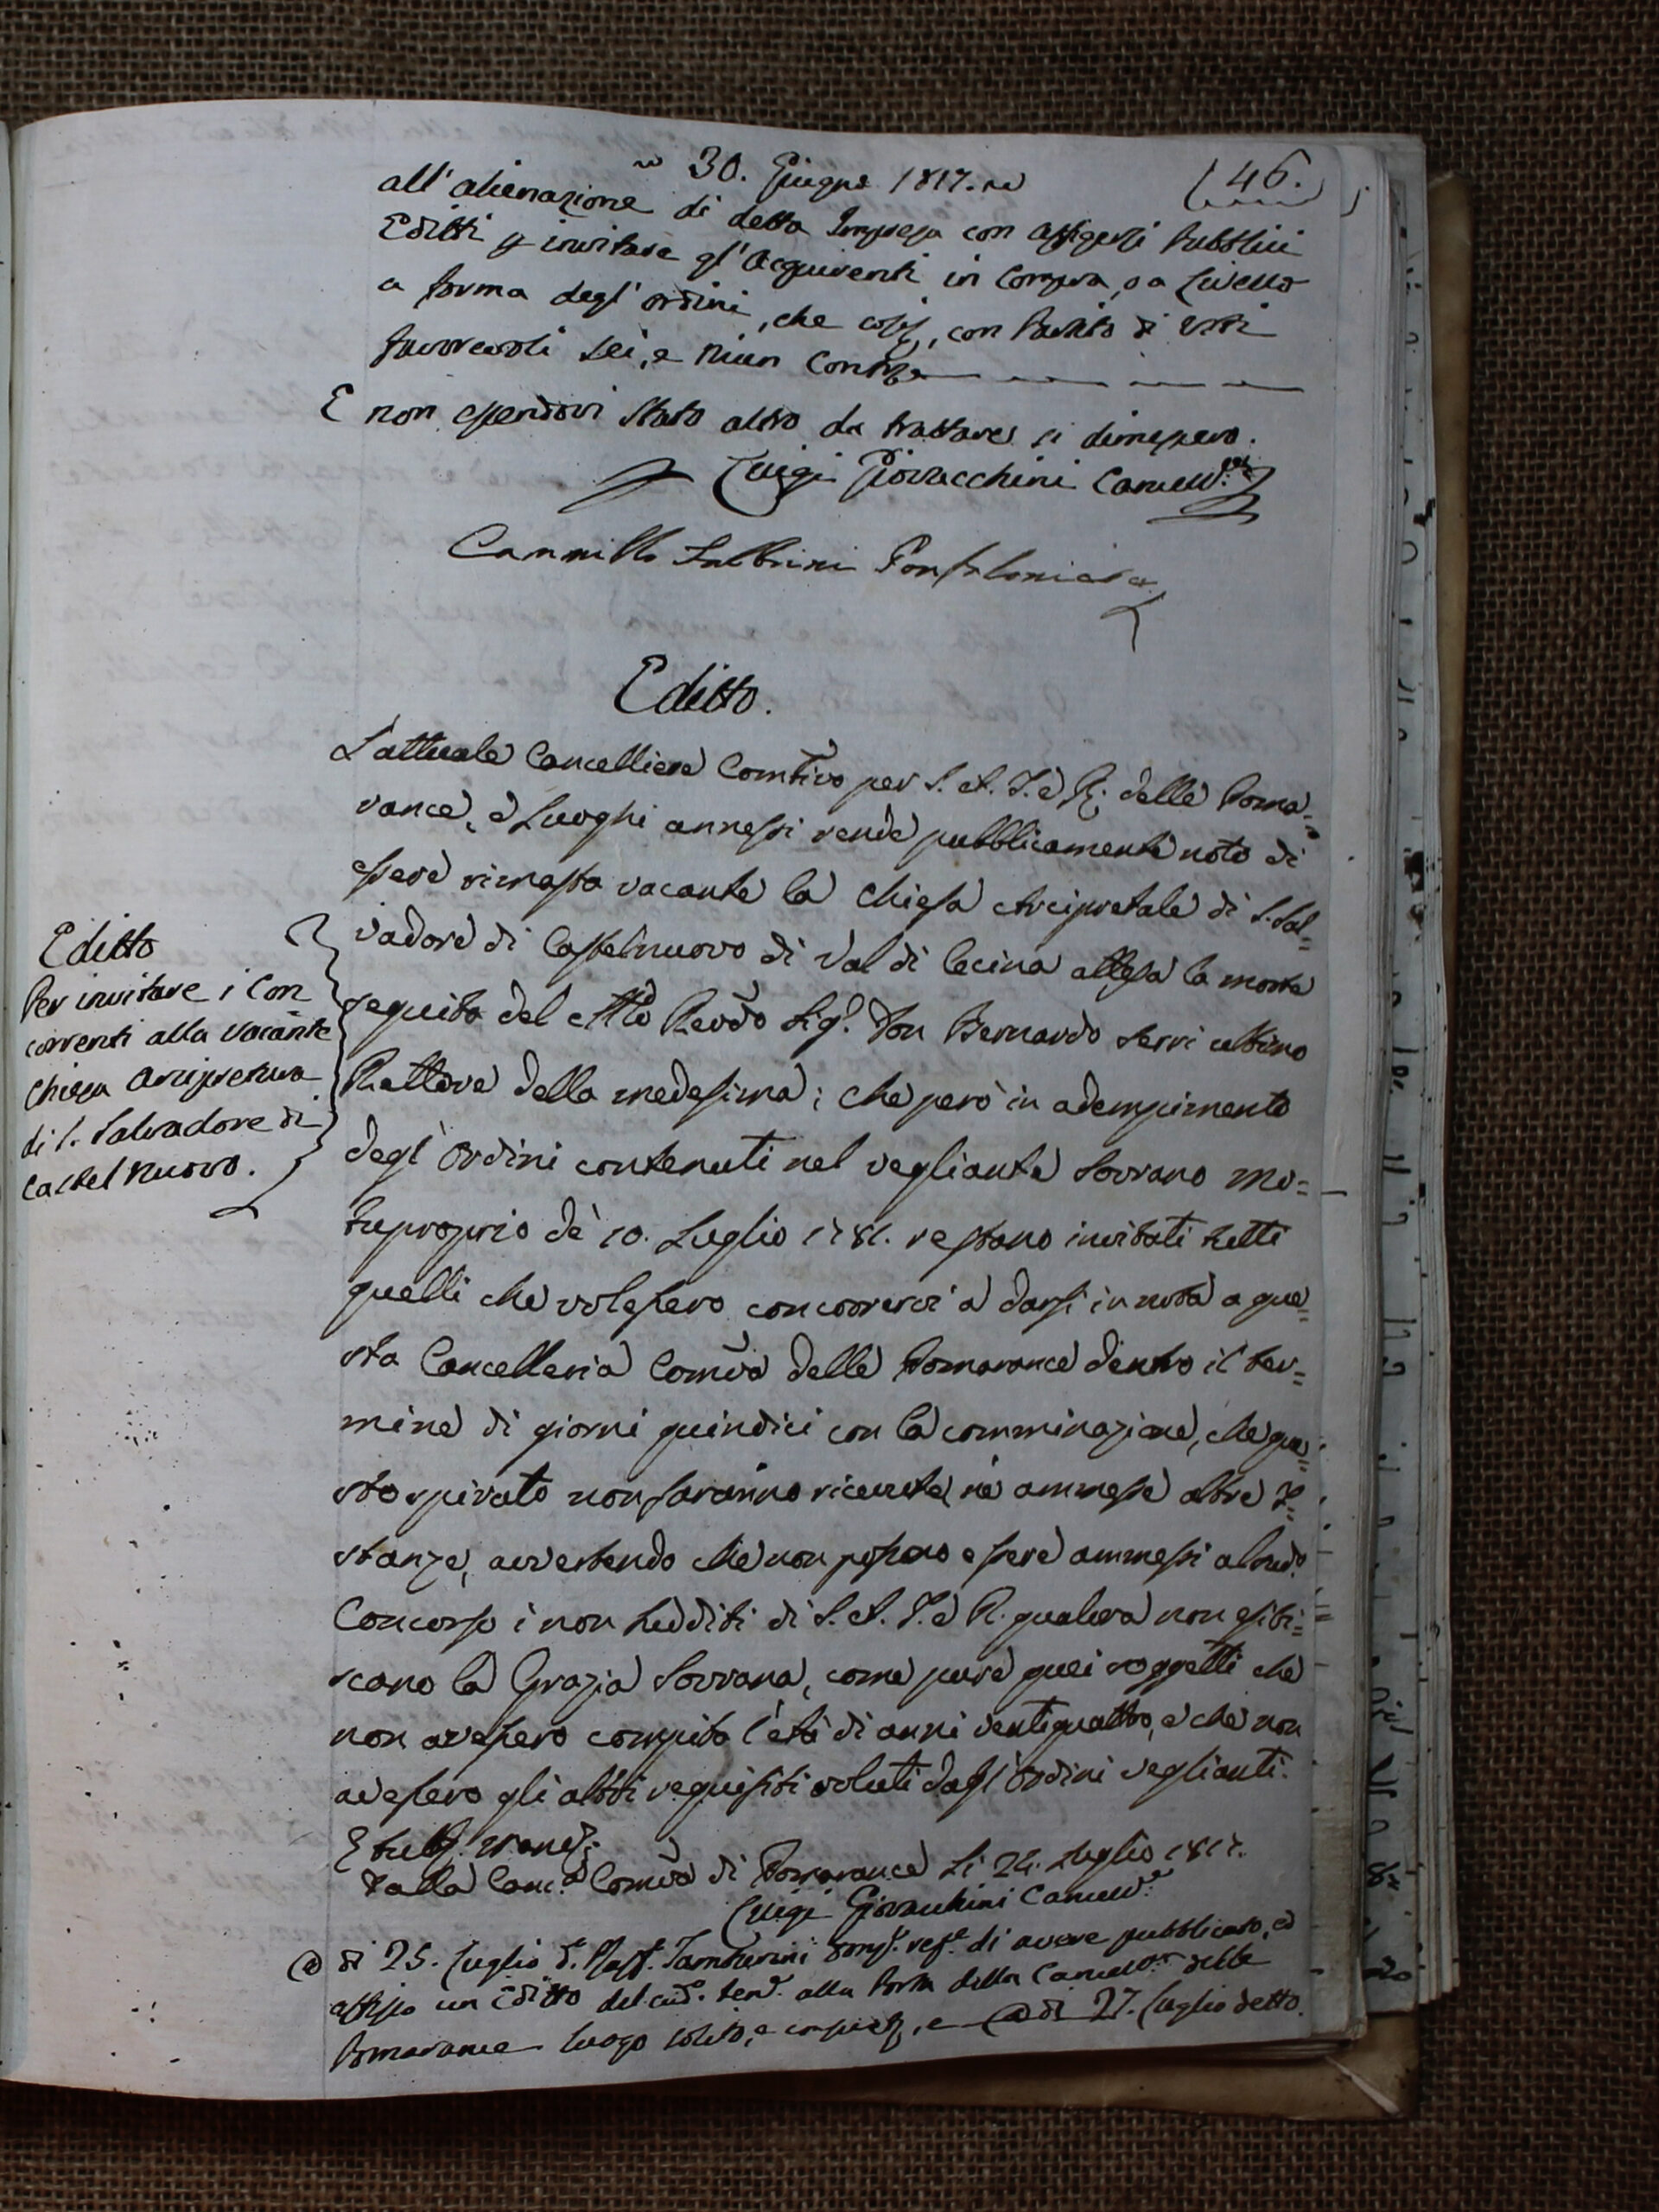 30. Giugno 1817.
146.
all'alienazione di detta Impresa con affigersi Pubblici
Editti p invitare gl'Acquirenti in Compra, o a Livello
a forma degl'ordini, che così, con Partito di Voti
favorevoli sei, e niun Contro
E non essendovi stato altro da trattare si dimessero.
Luigi Giovacchini Cancell.re
Cammillo Gonfaloniere
Editto.
L'attuale Cancelliere Comtivo per S. A. I. e R. delle Poma=
rance, e Luoghi annessi rende pubblicamente noto di
essere rimasta vacante la Chiesa Arcipretale di S. Sal=
vadore di Castelnuovo di Val di Cecina attesa la morte
seguita del Mto Revdo Sig.r Don Bernardo Serri ultimo
Rettore della medesima; che però in adempimento
degl'Ordini contenuti nel vegliante Sovrano Mo=
tuproprio de' 10. Luglio 1781. restano invitati tutti
quelli che volessero concorrervi a darsi in nota a que=
sta Cancelleria Comva delle Pomarance dentro il ter=
mine di giorni quindici con la comminazione, che que=
sto spirato non saranno ricevute, nè ammesse altre I=
stanze, avvertendo che non possono essere ammessi al sud.o
Concorso i non Sudditi di S. A. I. e R. qualora non esibi=
scano la Grazia Sovrana, come pure quei soggetti che
non avessero compita l'età di anni ventiquattro, e che non
avessero gli altri requisiti voluti dagl'Ordini veglianti.
E tutto
Dalla Canc.a Comva di Pomarance Li 24. Luglio 1817.
Luigi Giovacchini Cancell.re
A dì 25. Luglio d.o Tamburini di avere pubblicato, ed
affisso un Editto del sud.o ten.e alla Porta della Cancell.a delle
Pomarance luogo solito, e, e A dì 27. Luglio detto.
Editto
Per invitare i Con
correnti alla vacante
Chiesa Arcipretura
di S. Salvadore di
Castel nuovo.